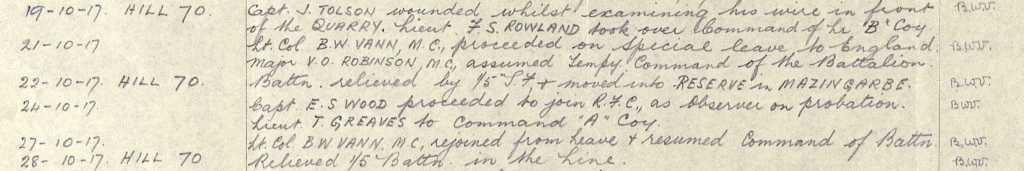 19-10-17. HILL 70. Capt. J. TOLSON wounded whilst examining his wire in front B.W.V.
of the QUARRY. Lieut. F. S. ROWLAND took over Command of his "B" Coy
21-10-17 Lt. Col. B. W. VANN, M.C., proceeded on Special leave to England. B.W.V.
Major V. O. ROBINSON, M.C., assumed Tempy Command of the Battalion.
22-10-17. HILL 70. Battn. relieved by 1/5" S.F. & moved into RESERVE in MAZINGARBE. B.W.V.
24-10-17. Capt. E. S WOOD proceeded to join R.F.C., as Observer on probation. B.W.V.
Lieut. T. GREAVES to Command "A" Coy.
27-10-17. Lt. Col. B W VANN, M.C., rejoined from leave & resumed Command of Battn. B.W.V.
28-10-17. HILL 70 Relieved 1/5" Battn. in the Line. B.W.V.